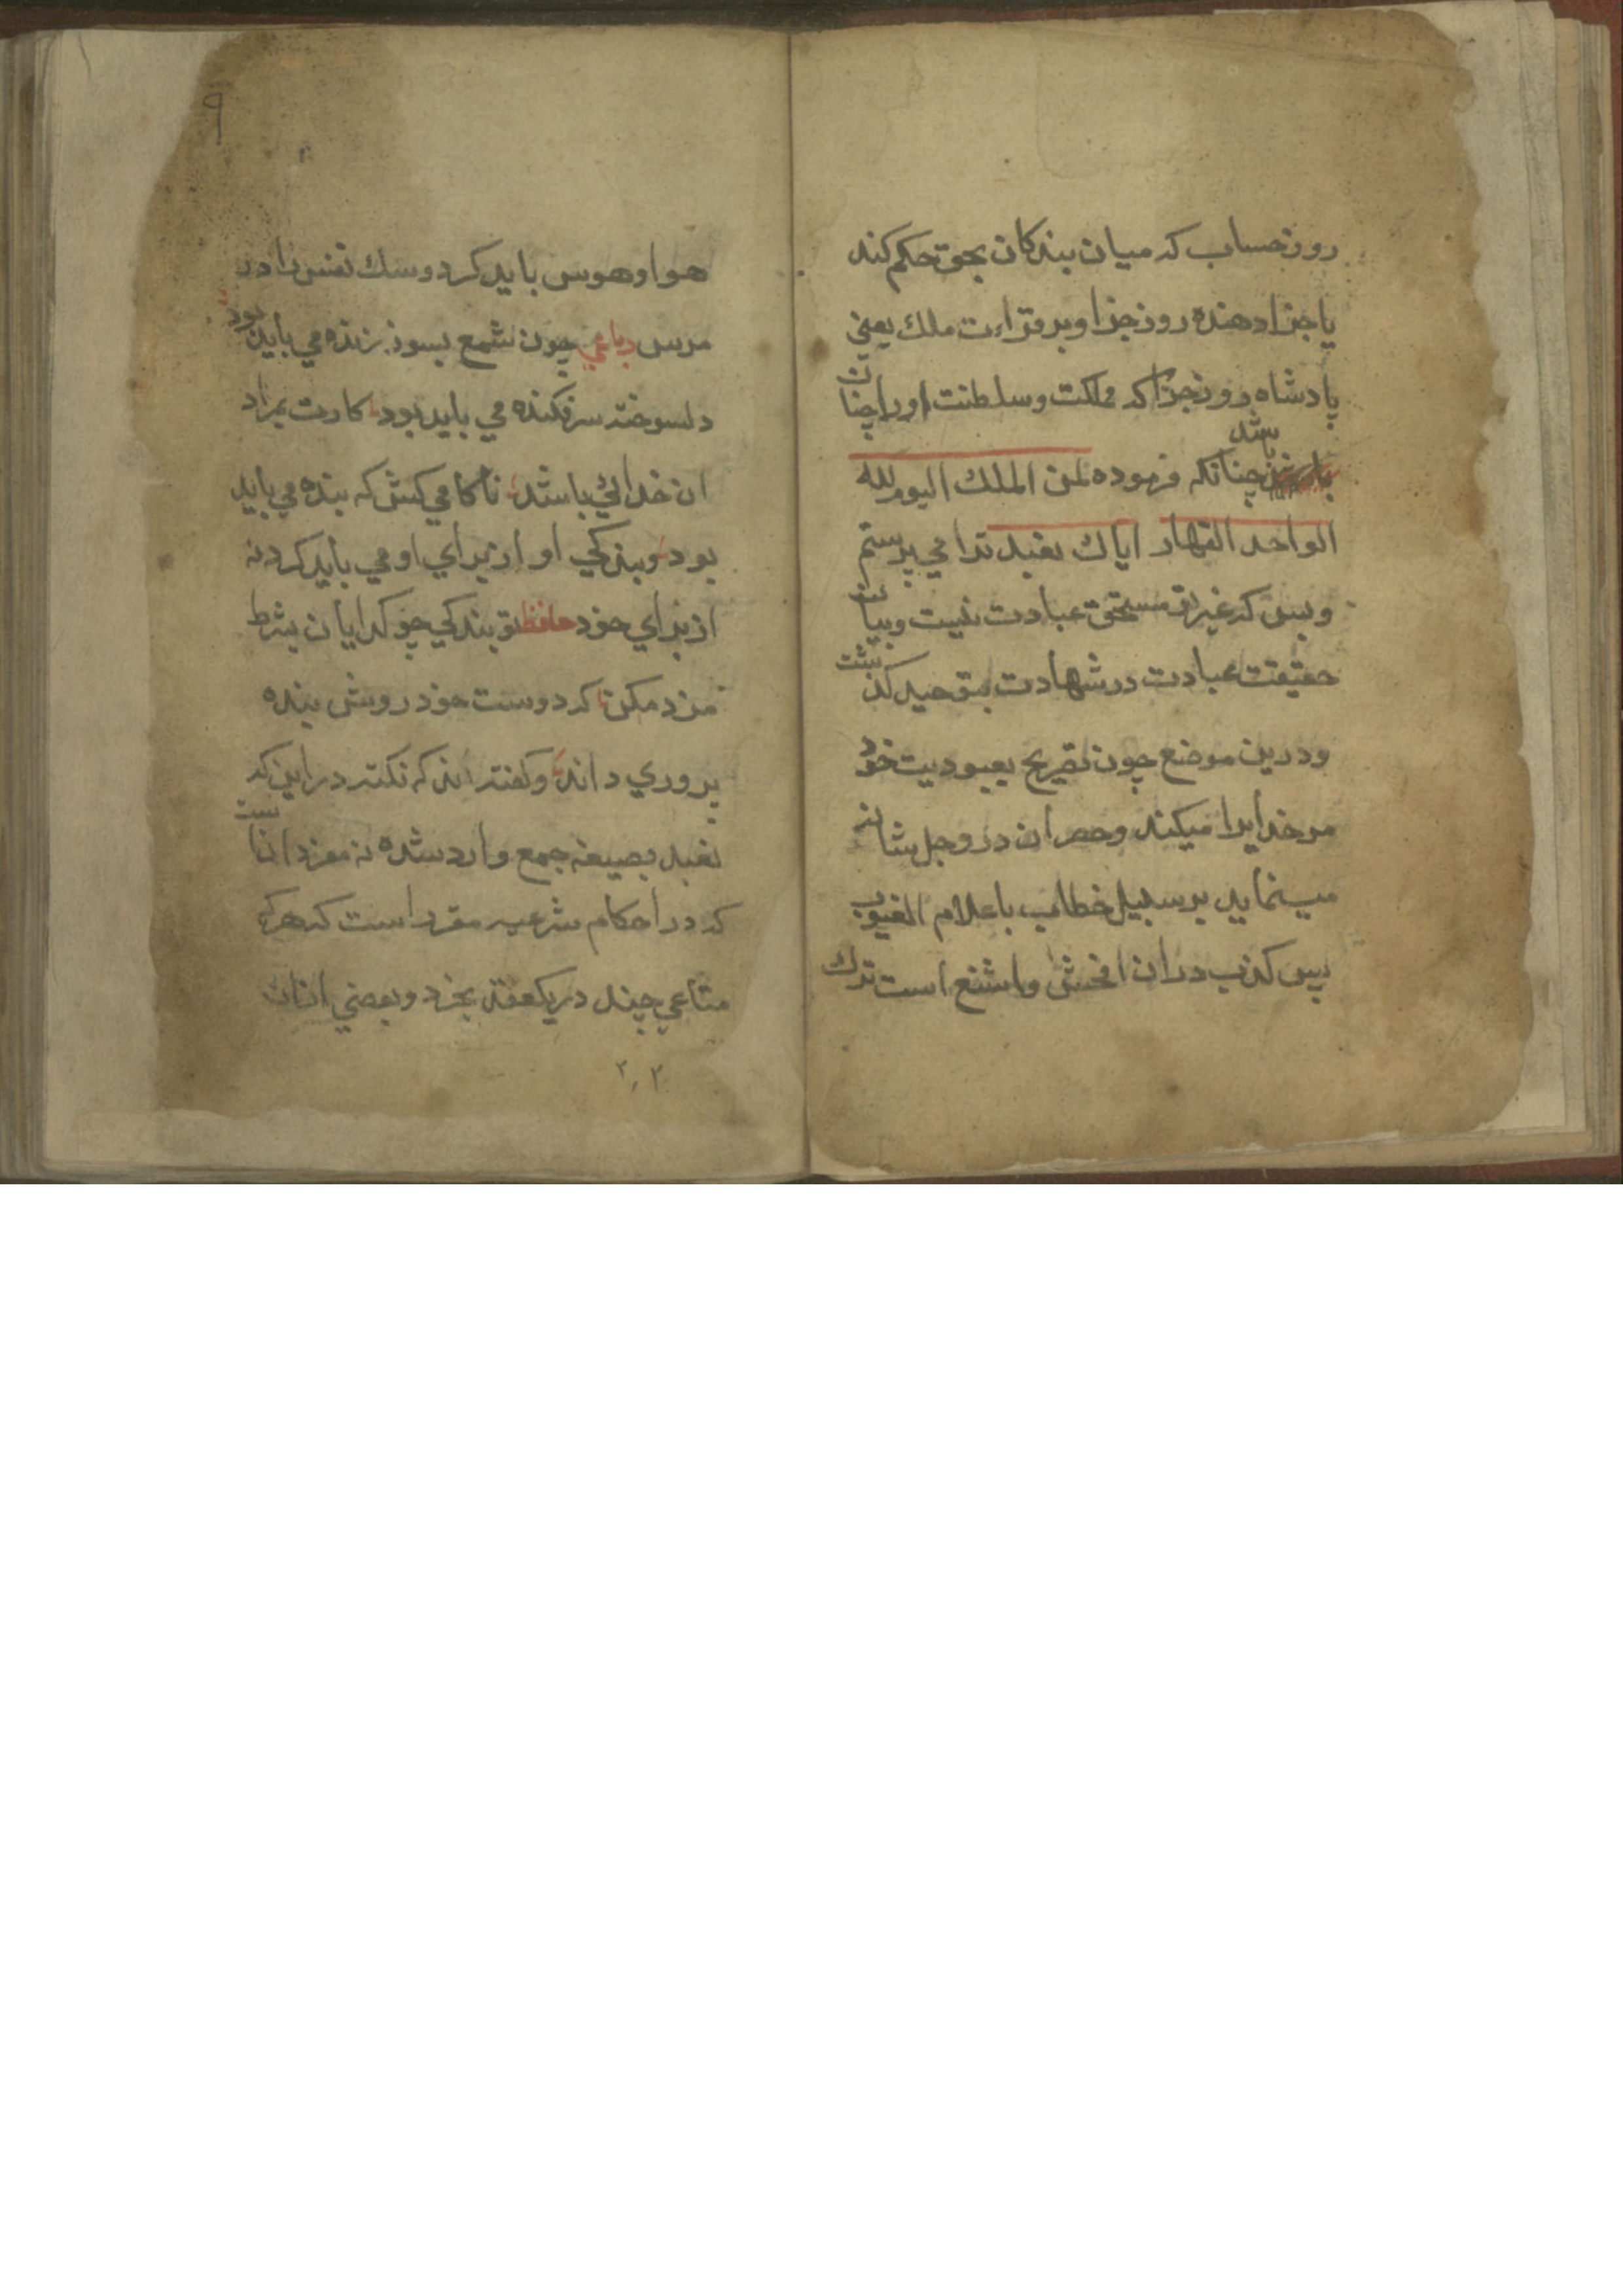 روز حساب که میان بندکان بحق حکم کند
یا جزا دهنده روز جزا و بر قراءت ملك یعنی
پادشاه روز جزا که مملکت وسلطنت او را چنان
باشد چنانکه فرموده لمن الملك الیوم لله
الواحد القهار ایاك نعبد ترا می پرستم
وبس که غیر تو مستحق عبادت نیست وبیان
حقیقت عبادت در شهادت بتوحید کذشت
ودرین موضع چون تصریح بعبودیت خود
مر خدایرا میکند وحصر ان در وجل شانه
مینماید بر سبیل خطاب با علام الغیوب
پس کذب دران افحش واشنع است ترك
۹
هوا وهوس باید کرد وسك نفس را در
مرس رباعی چون شمع بسوز زنده می باید بود
دلسوخته سرفکنده می باید بود کارت بمراد
ان خدائی باشد ناکامی کش که بنده می باید
بود وبندکی او از برای او می باید کرد نه
از برای خود حافظ تو بندکی چو کدایان بشرط
مزد مکن که دوست خود روش بنده
پروری داند وکفته اند که نکته در این که
نعبد بصیغه جمع وارد شده نه مفرد انست
که در احکام شرعیه مقرر است که هرکه
متاعی چند در یکصفقه بخرد وبعضی ازان